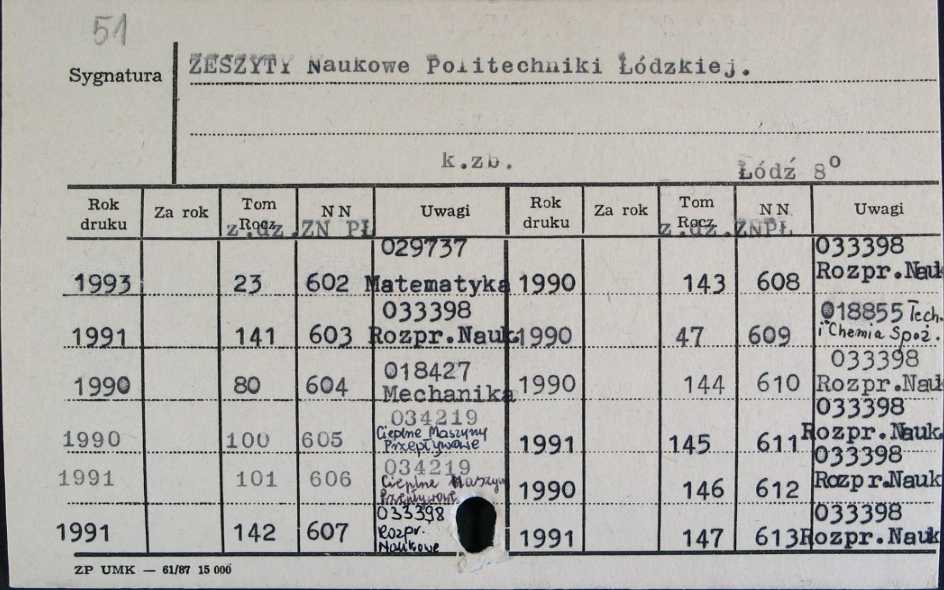 51
Sygnatura
ZESZYTY Naukowe Politechniki Łódzkiej.
k.zb. Łódź 8°
Rok druku Za rok Tom Rocz. NN Uwagi Rok druku Za rok Tom Rocz. NN Uwagi
z.dz. ZN PŁ z.dz. ZNPŁ
029737 033398
1993 23 602 Matematyka 1990 143 608 Rozpr.Nauk
033398 018855 Tech.
1991 141 603 Rozpr.Nauk. 1990 47 609 i Chemia Spoż.
018427 033398
1990 80 604 Mechanika 1990 144 610 Rozpr.Nauk
034219 033398
1990 100 605 Cieplne Maszyny Przepływowe 1991 145 611 Rozpr.Nauk.
034219 033398
1991 101 606 Cieplne Maszyny Przepływowe 1990 146 612 Rozpr.Nauk
033398 033398
1991 142 607 Rozpr. Naukowe 1991 147 613 Rozpr.Nauk
ZP UMK — 61/87 15 000